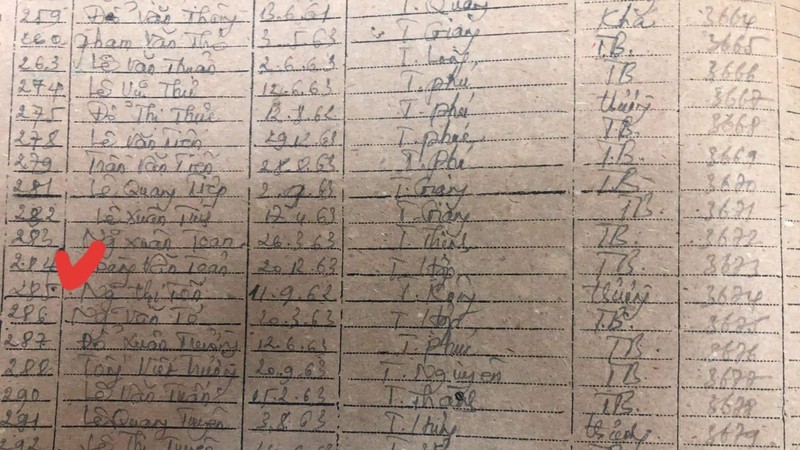 259 Đỗ Văn Thông 13.6.61 T. Quang Khá 3664
260 Phạm Văn Thọ 3.5.63 T. Giang TB. 3665
263 Lê Văn Thuân 2.6.63 T. Long TB 3666
274 Lê Thư 12.6.63 T. Phú TB 3667
275 Đỗ Thị Thuê 12.8.62 T. Phú thường 3668
278 Lê Văn Tiên 29.12.63 T. Phúc TB. 3669
279 Trần Văn Tiến 28.8.63 T. Phú TB
281 Lê Quang Tiếp 2.9.63 T. Giang TB 3670
282 Lê Xuân 17.4.63 T. Giang TB. 3671
283 Ng Xuân Toan 26.3.63 T. Thịnh TB. 3672
284 Văn Toản 20.12.63 TB 3673
285 Ng Thị 11.9.62 thường 3674
286 Ng Văn Tố 20.3.63 TB. 3675
287 Đỗ Xuân Trường 12.6.63 T. Phúc TB 3676
288 Tống Viết Trường 20.9.63 T. Nguyên TB 3677
290 Lê Văn Tuấn 15.2.63 T. Thắng TB. 3678
291 Lê Quang Tuyên 3.8.63 T. Hưng 3679
292 Lê Thị Tuyên